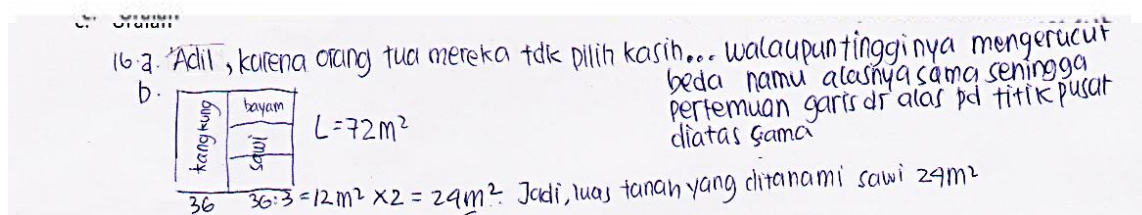 C. Uraian
16.a. Adil, karena orang tua mereka tdk pilih kasih... walaupun tingginya mengerucut
beda namu alasnya sama seningga
pertemuan garis dr alas pd titik pusat
diatas sama
b.
kangkung
bayam
sawi
L=72m²
36 36:3 = 12 m² x2 = 24m². Jadi, luas tanah yang ditanami sawi 24m²